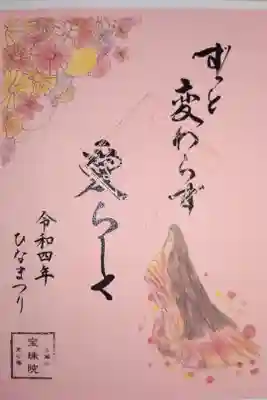 ずっと
変わらず
愛らしく
令和四年
ひなまつり
宝珠院